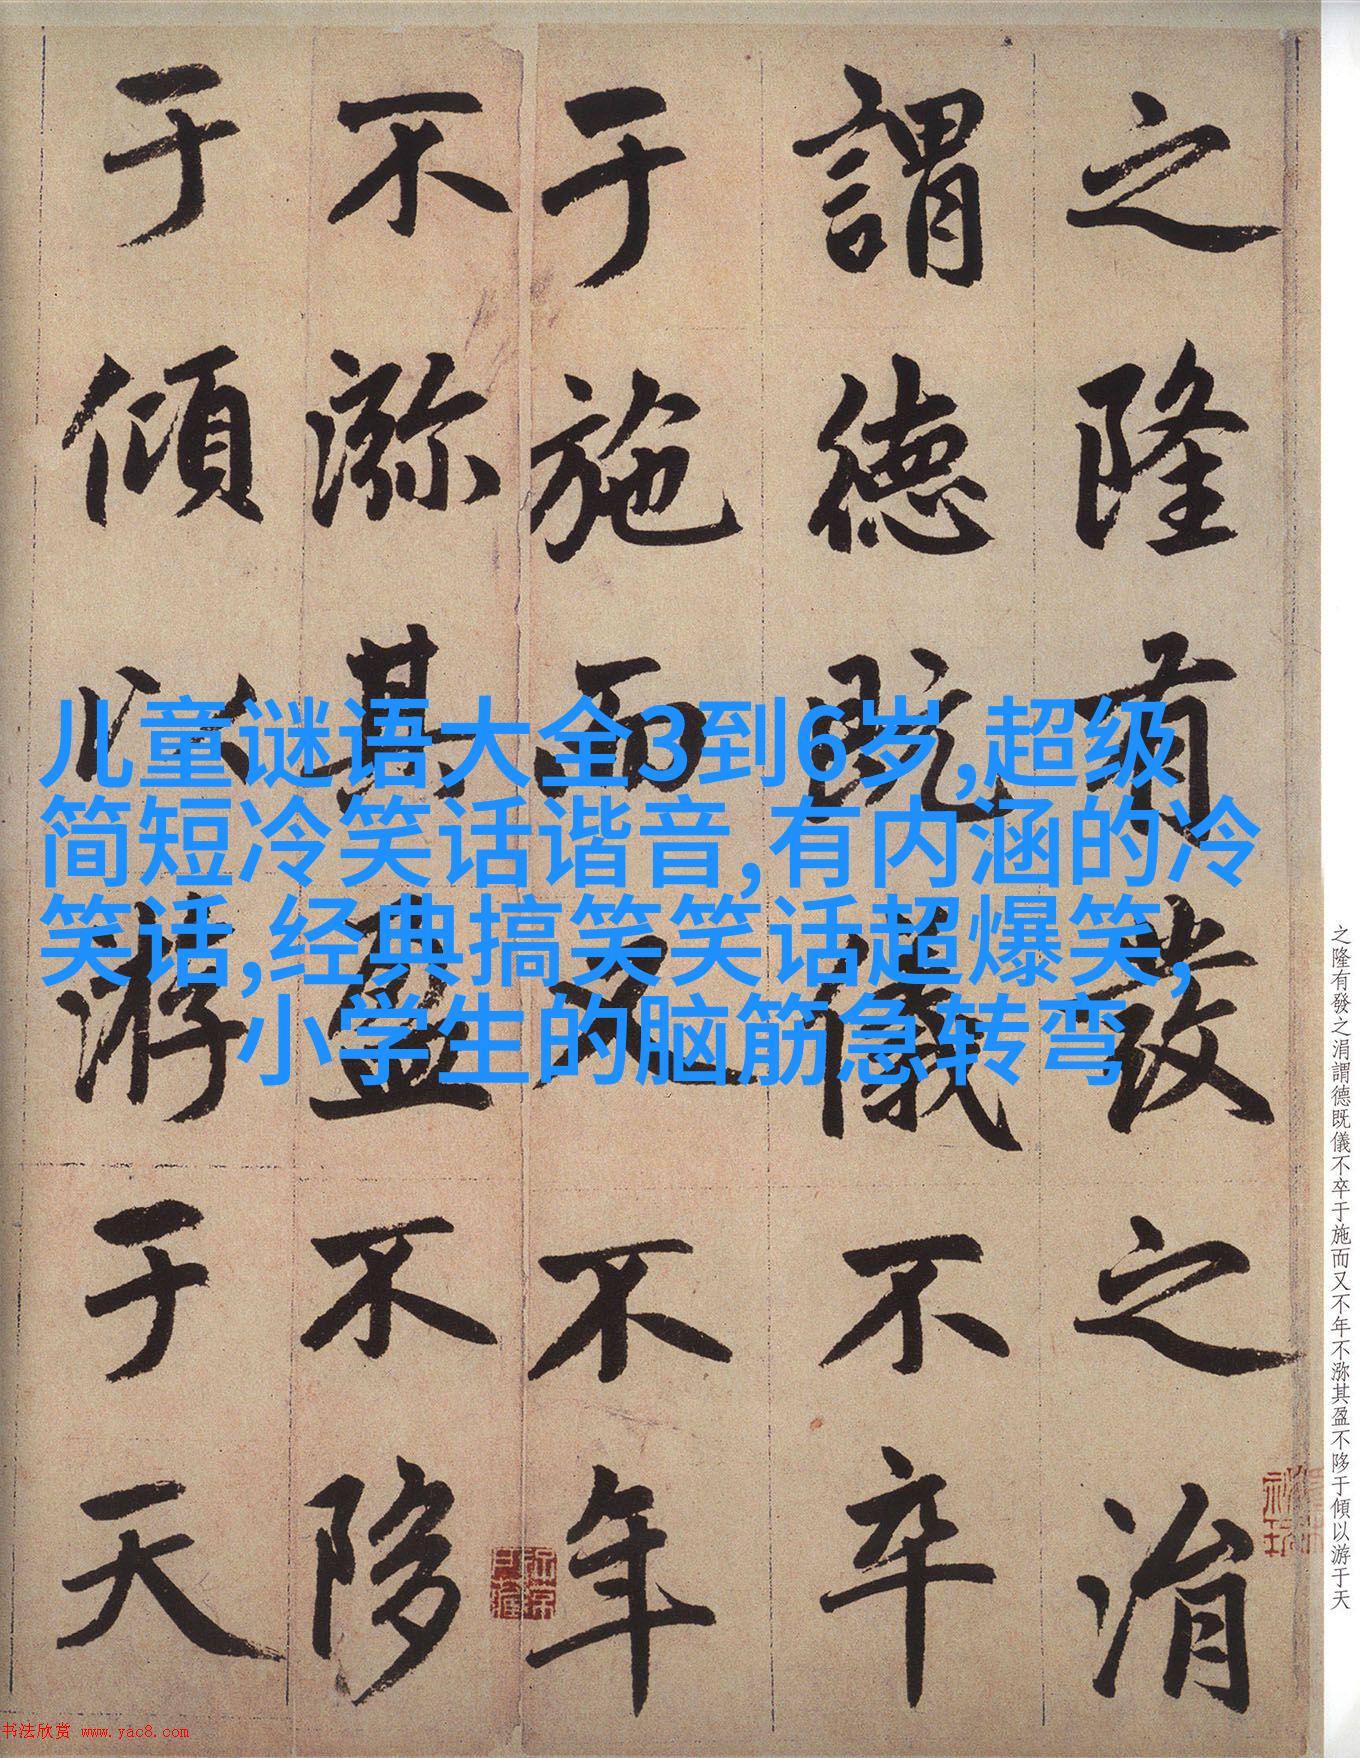 之隆有發之涓
謂德既儀不卒
于施而又不年
不沵其盈不陊
于傾以游于天
儿童谜语大全3到6岁,超级
简短冷笑话谐音,有内涵的冷
笑话,经典搞笑笑话超爆笑,
小学生的脑筋急转弯
之隆有發之涓謂德既儀不卒于施而又不年不沵其盈不陊于傾以游于天
书法欣赏 www.yac8.com